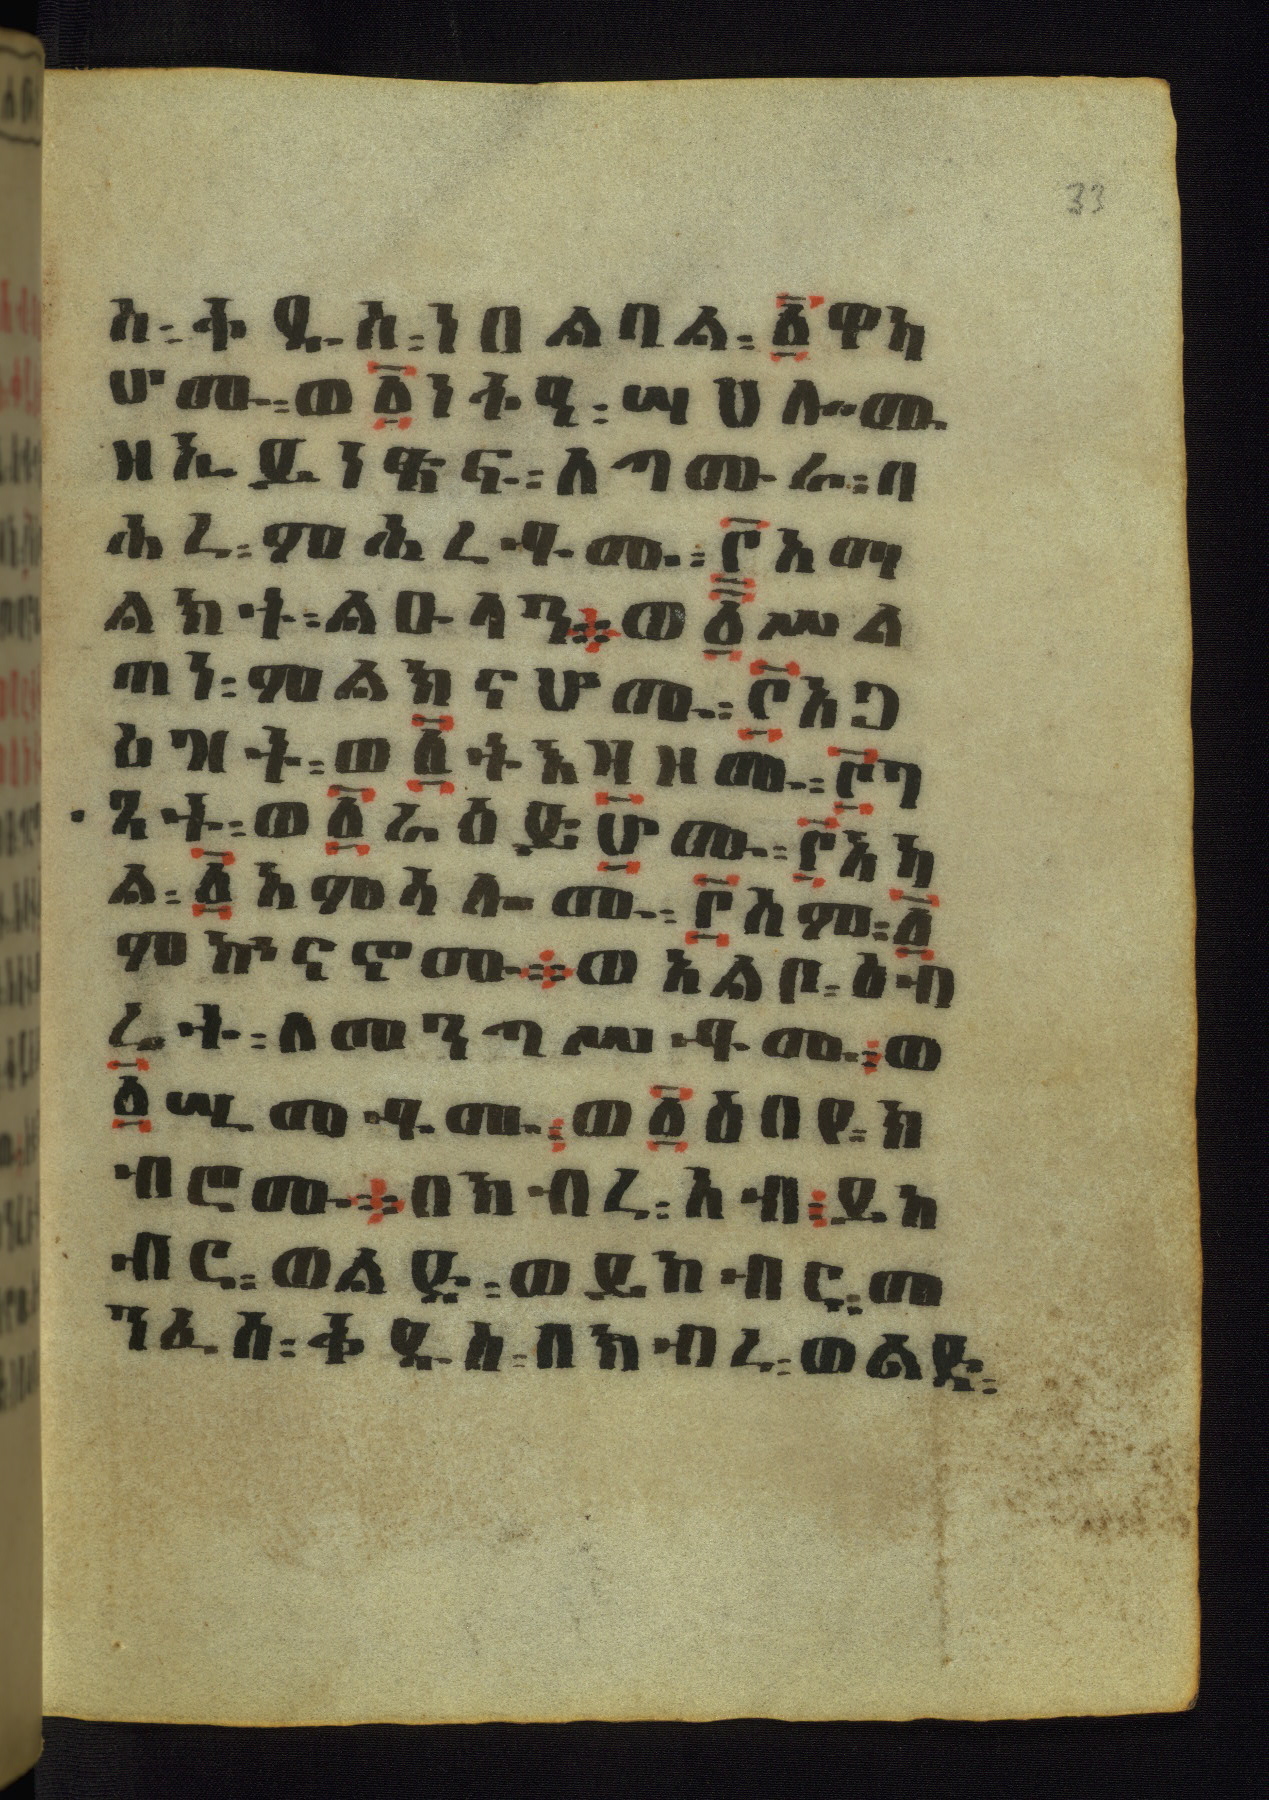 ስ፡ቅዱስ፡ነበልባል፡፩ዋካ
ሆሙ፡ወ፩ነቅዒ፡ሣህሎሙ
ዘኢይነጽፍ፡ለጣሙራ፡በ
ሕረ፡ምሕረቶሙ፡፫አማ
ልክት፡ልዑላን፨ወ፩ሥል
ጣን፡ምልክናሆሙ፡፫አጋ
ዕዝት፡ወ፩ትእዛዘሙ፡፫ግ
ጻት፡ወ፩ራዕይሆሙ፡፫አካ
ል፡፩አምሳሎሙ፡፫ስም፡፩
ምኵናኖሙ፨ወአልቦ፡ዕብ
ሬት፡ለመንግሥቶሙ፡ወ
፩ሢመቶሙ፡ወ፩ዕበየ፡ክ
ብሮሙ፨በክብረ፡አብ፡ይከ
ብር፡ወልድ፡ወይከብር፡መ
ንፈስ፡ቅዱስ፡በክብረ፡ወልድ፡
33